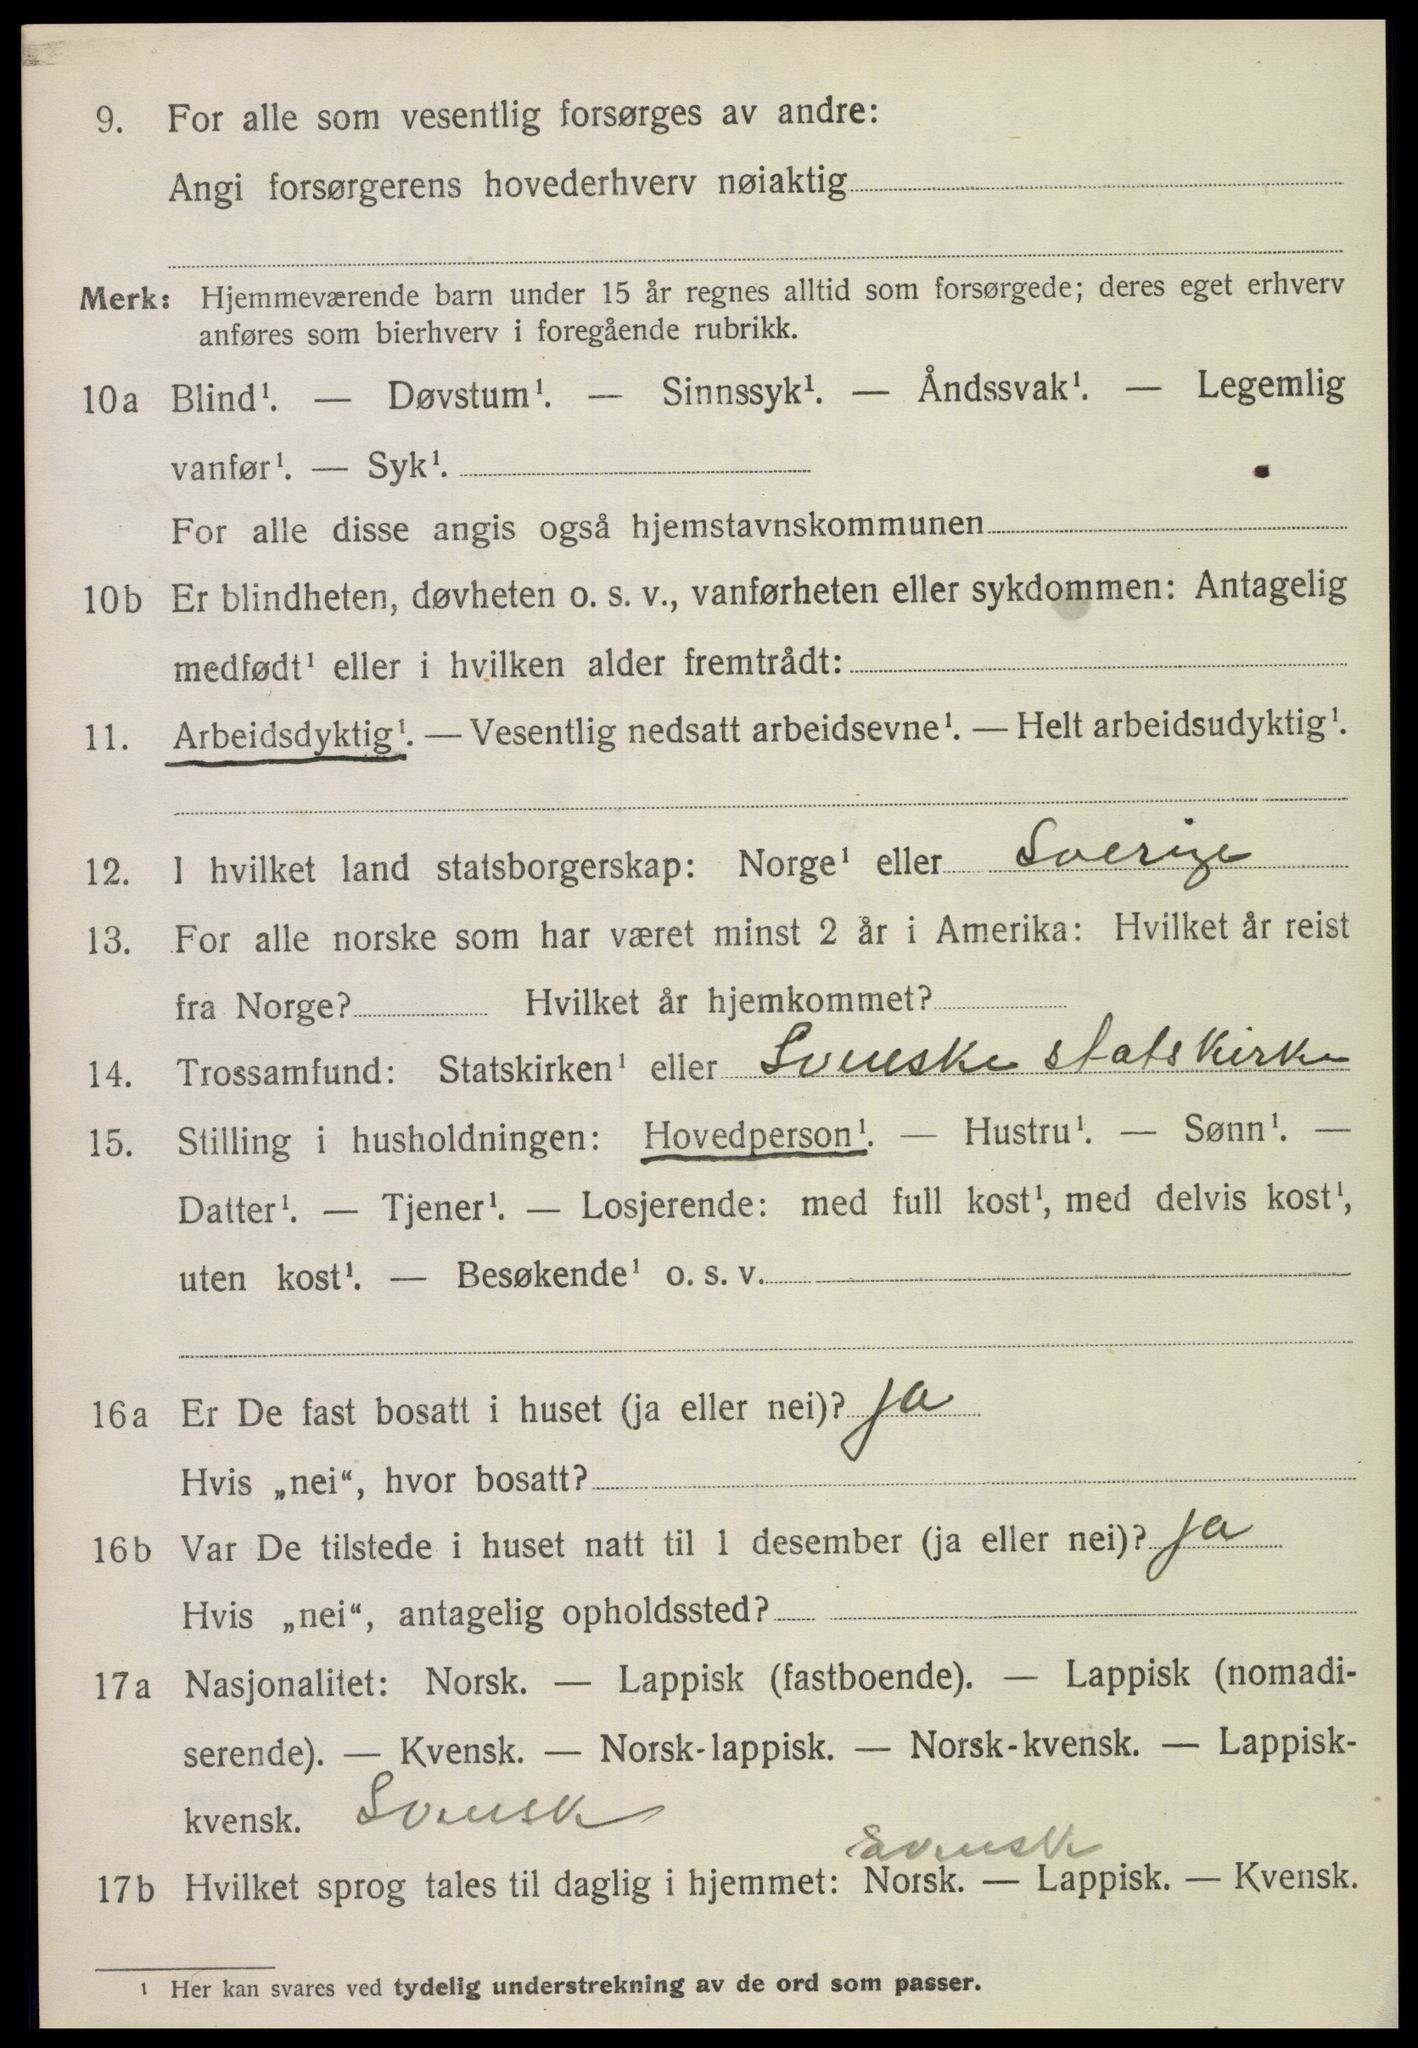 9. For alle som vesentlig forsørges av andre:
Angi forsørgerens hovederhverv nøiaktig
Merk: Hjemmeværende barn under 15 år regnes alltid som forsørgede; deres eget erhverv
anføres som bierhverv i foregående rubrikk.
10a Blind¹. — Døvstum¹. — Sinnssyk¹. — Åndssvak¹. — Legemlig
vanfør¹. — Syk¹.
For alle disse angis også hjemstavnskommunen
10b Er blindheten, døvheten o. s. v., vanførheten eller sykdommen: Antagelig
medfødt¹ eller i hvilken alder fremtrådt:
11. Arbeidsdyktig¹. — Vesentlig nedsatt arbeidsevne¹. — Helt arbeidsudyktig¹.
12. I hvilket land statsborgerskap: Norge¹ eller Sverige
13. For alle norske som har været minst 2 år i Amerika: Hvilket år reist
fra Norge? Hvilket år hjemkommet?
14. Trossamfund: Statskirken¹ eller Svenske statskirke
15. Stilling i husholdningen: Hovedperson¹. — Hustru¹. — Sønn¹. —
Datter¹. — Tjener¹. — Losjerende: med full kost¹, med delvis kost¹,
uten kost¹. — Besøkende¹ o. s. v.
16a Er De fast bosatt i huset (ja eller nei)? ja
Hvis „nei“, hvor bosatt?
16b Var De tilstede i huset natt til 1 desember (ja eller nei)? ja
Hvis „nei“, antagelig opholdssted?
17a Nasjonalitet: Norsk. — Lappisk (fastboende). — Lappisk (nomadi-
serende). — Kvensk. — Norsk-lappisk. — Norsk-kvensk. — Lappisk-
kvensk. Svensk
Svensk
17b Hvilket sprog tales til daglig i hjemmet: Norsk. — Lappisk. — Kvensk.
¹ Her kan svares ved tydelig understrekning av de ord som passer.